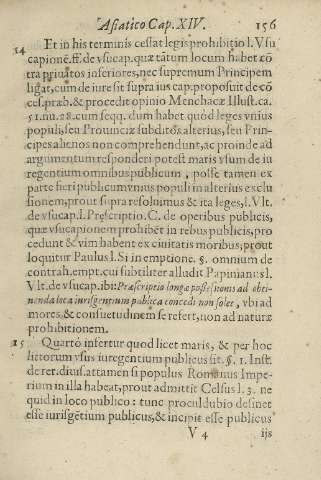 Asiatico Cap. XIV. 156
14 Et in his terminis cessat legis prohibitio l. Vsu
capionē. Æ. de vsucap. quæ tãtum locum habet cõ
tra priuatos inferiores, nec supremum Principem
ligat, cum de iure sit supra ius cap. proposuit de cõ
ces. præb. & procedit opinio Menchacæ Illust. ca.
51. nu. 28. cum seqq. dum habet quod leges vnius
populi, seu Prouinciæ subditos alterius, seu Prin-
cipes alienos non comprehendunt, ac proinde ad
argumentum responderi potest maris vsum de iu
re gentium omnibus publicum, posse tamen ex
parte fieri publicum vnius populi in alterius exclu
sionem, prout supra resoluimus & ita leges, l. Vlt.
de vsucap. l. Præscriptio. C. de operibus publicis,
quæ vsucapionem prohibēt in rebus publicis, pro
cedunt & vim habent ex ciuitatis moribus, prout
loquitur Paulus l. Si in emptione. §. omnium de
contrah. empt. cui subtiliter alludit Papinianus l.
Vlt. de vsucap. ibi: Præscriptio longæ possessionis ad obti-
nenda loca iuris gentium publica concedi non solet, vbi ad
mores, & consuetudinem se refert, non ad naturæ
prohibitionem.
15 Quartò infertur quod licet maris, & per hoc
littorum vsus iure gentium publicus sit. §. 1. Inst.
de rer. diuis. attamen si populus Romanus Impe-
rium in illa habeat, prout admittit Celsus l. 3. ne
quid in loco publico: tunc proculdubio desinet
esse iuris gẽtium publicus, & incipit esse publicus
V 4 ijs